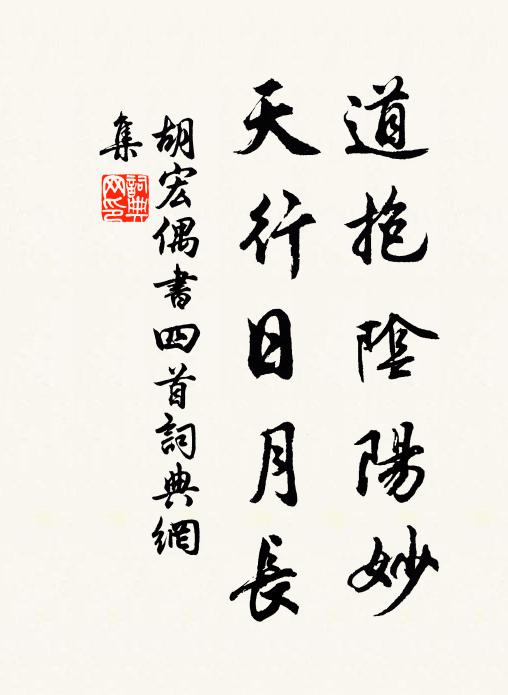 道抱陰陽妙
天行日月長
胡宏偶書四首詞典網
集
詞典
网印